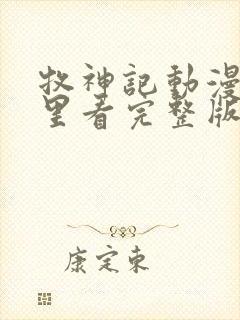 牧神記動漫
里看完整版
康定東